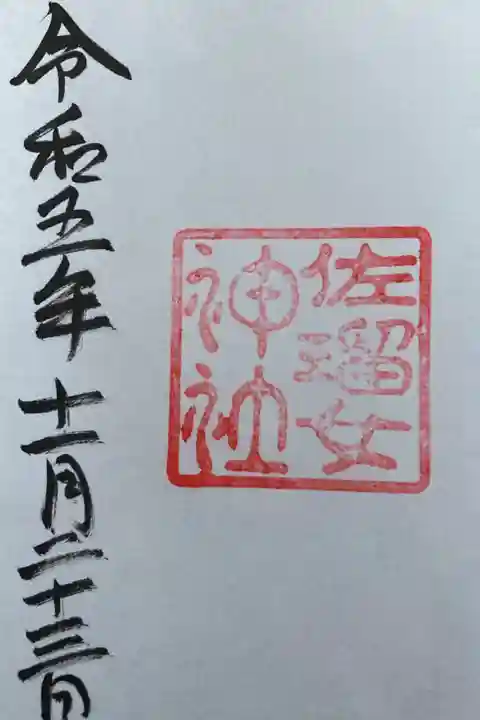 佐瑠女
神社
令和五年十一月二十三日